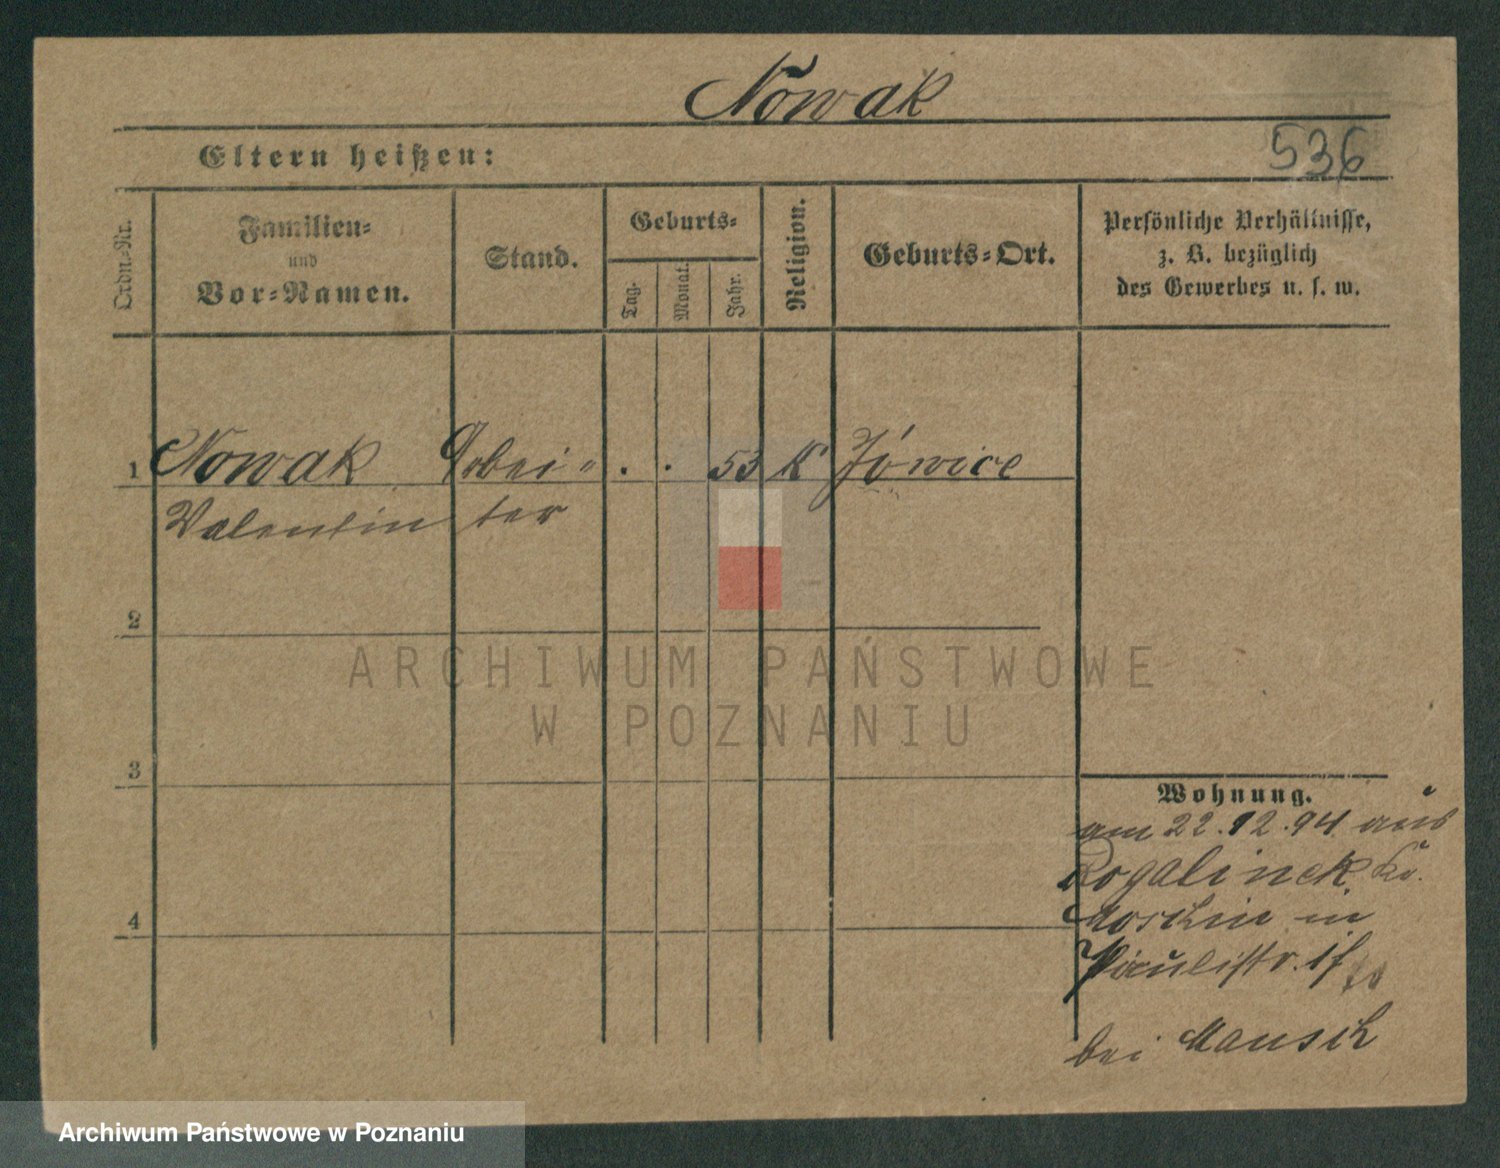 Nowak
Eltern heißen:
536
Ordn.-Nr.
Familien-
und
Vor-Namen.
Stand.
Geburts-
Tag.
Monat.
Jahr.
Religion.
Geburts-Ort.
Persönliche Verhältnisse,
z. B. bezüglich
des Gewerbes u. s. w.
1 Nowak Arbei- . . 53 K
Valentin ter
2
ARCHIWUM PAŃSTWOWE
W POZNANIU
3
Wohnung.
am 22.12.94 aus
Rogalinek Kr.
Moschin in
Paulistr.
4
bei Mansch
Archiwum Państwowe w Poznaniu